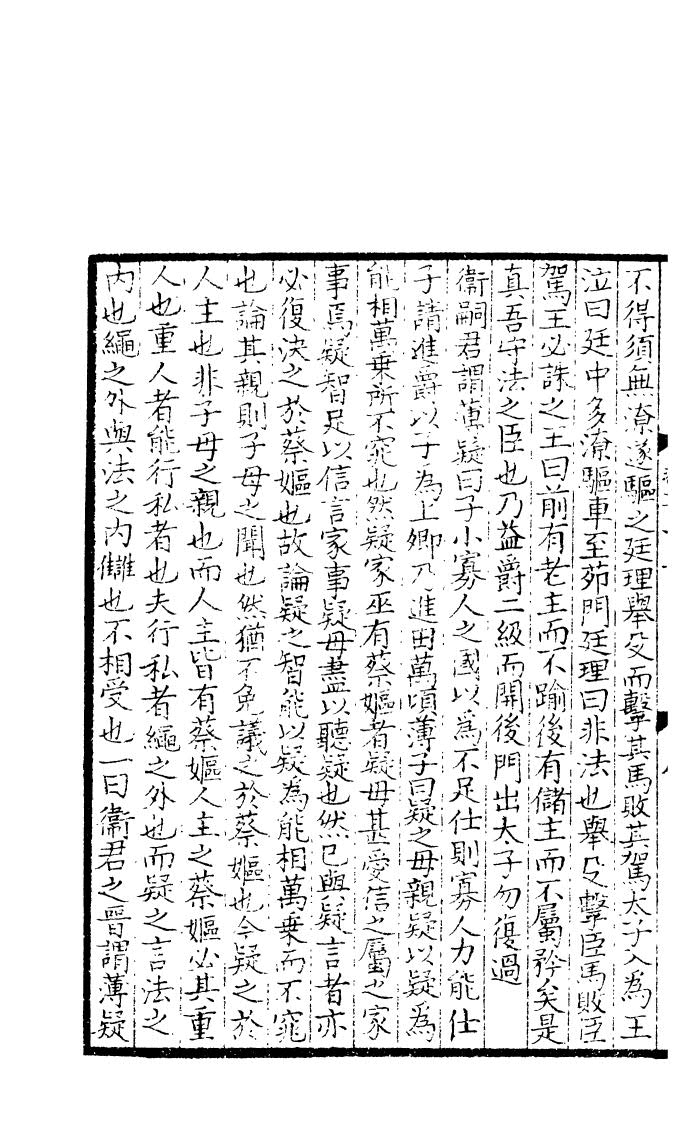 不得須無潦遂驅之廷理舉殳而擊其馬敗其駕太子入為王
泣曰廷中多潦驅車至茆門廷理曰非法也舉殳擊臣馬敗臣
駕王必誅之王曰前有老主而不踰後有儲主而不屬矜矣是
真吾守法之臣也乃益爵二級而開後門出太子勿復過
衞嗣君謂薄疑曰子小寡人之國以為不足仕則寡人力能仕
子請進爵以子為上卿乃進田萬頃薄子曰疑之母親疑以疑為
能相萬乗所不窕也然疑家巫有蔡嫗者疑母甚愛信之屬之家
事焉疑智足以信言家事疑母盡以聽疑也然已與疑言者亦
必復決之於蔡嫗也故論疑之智能以疑為能相萬乗而不窕
也論其親則子母之聞也然猶不免議之於蔡嫗也今疑之於
人主也非子母之親也而人主皆有蔡嫗人主之蔡嫗必其重
人也重人者能行私者也夫行私者繩之外也而疑之言法之
内也繩之外與法之内讎也不相受也一曰衞君之晉謂薄疑